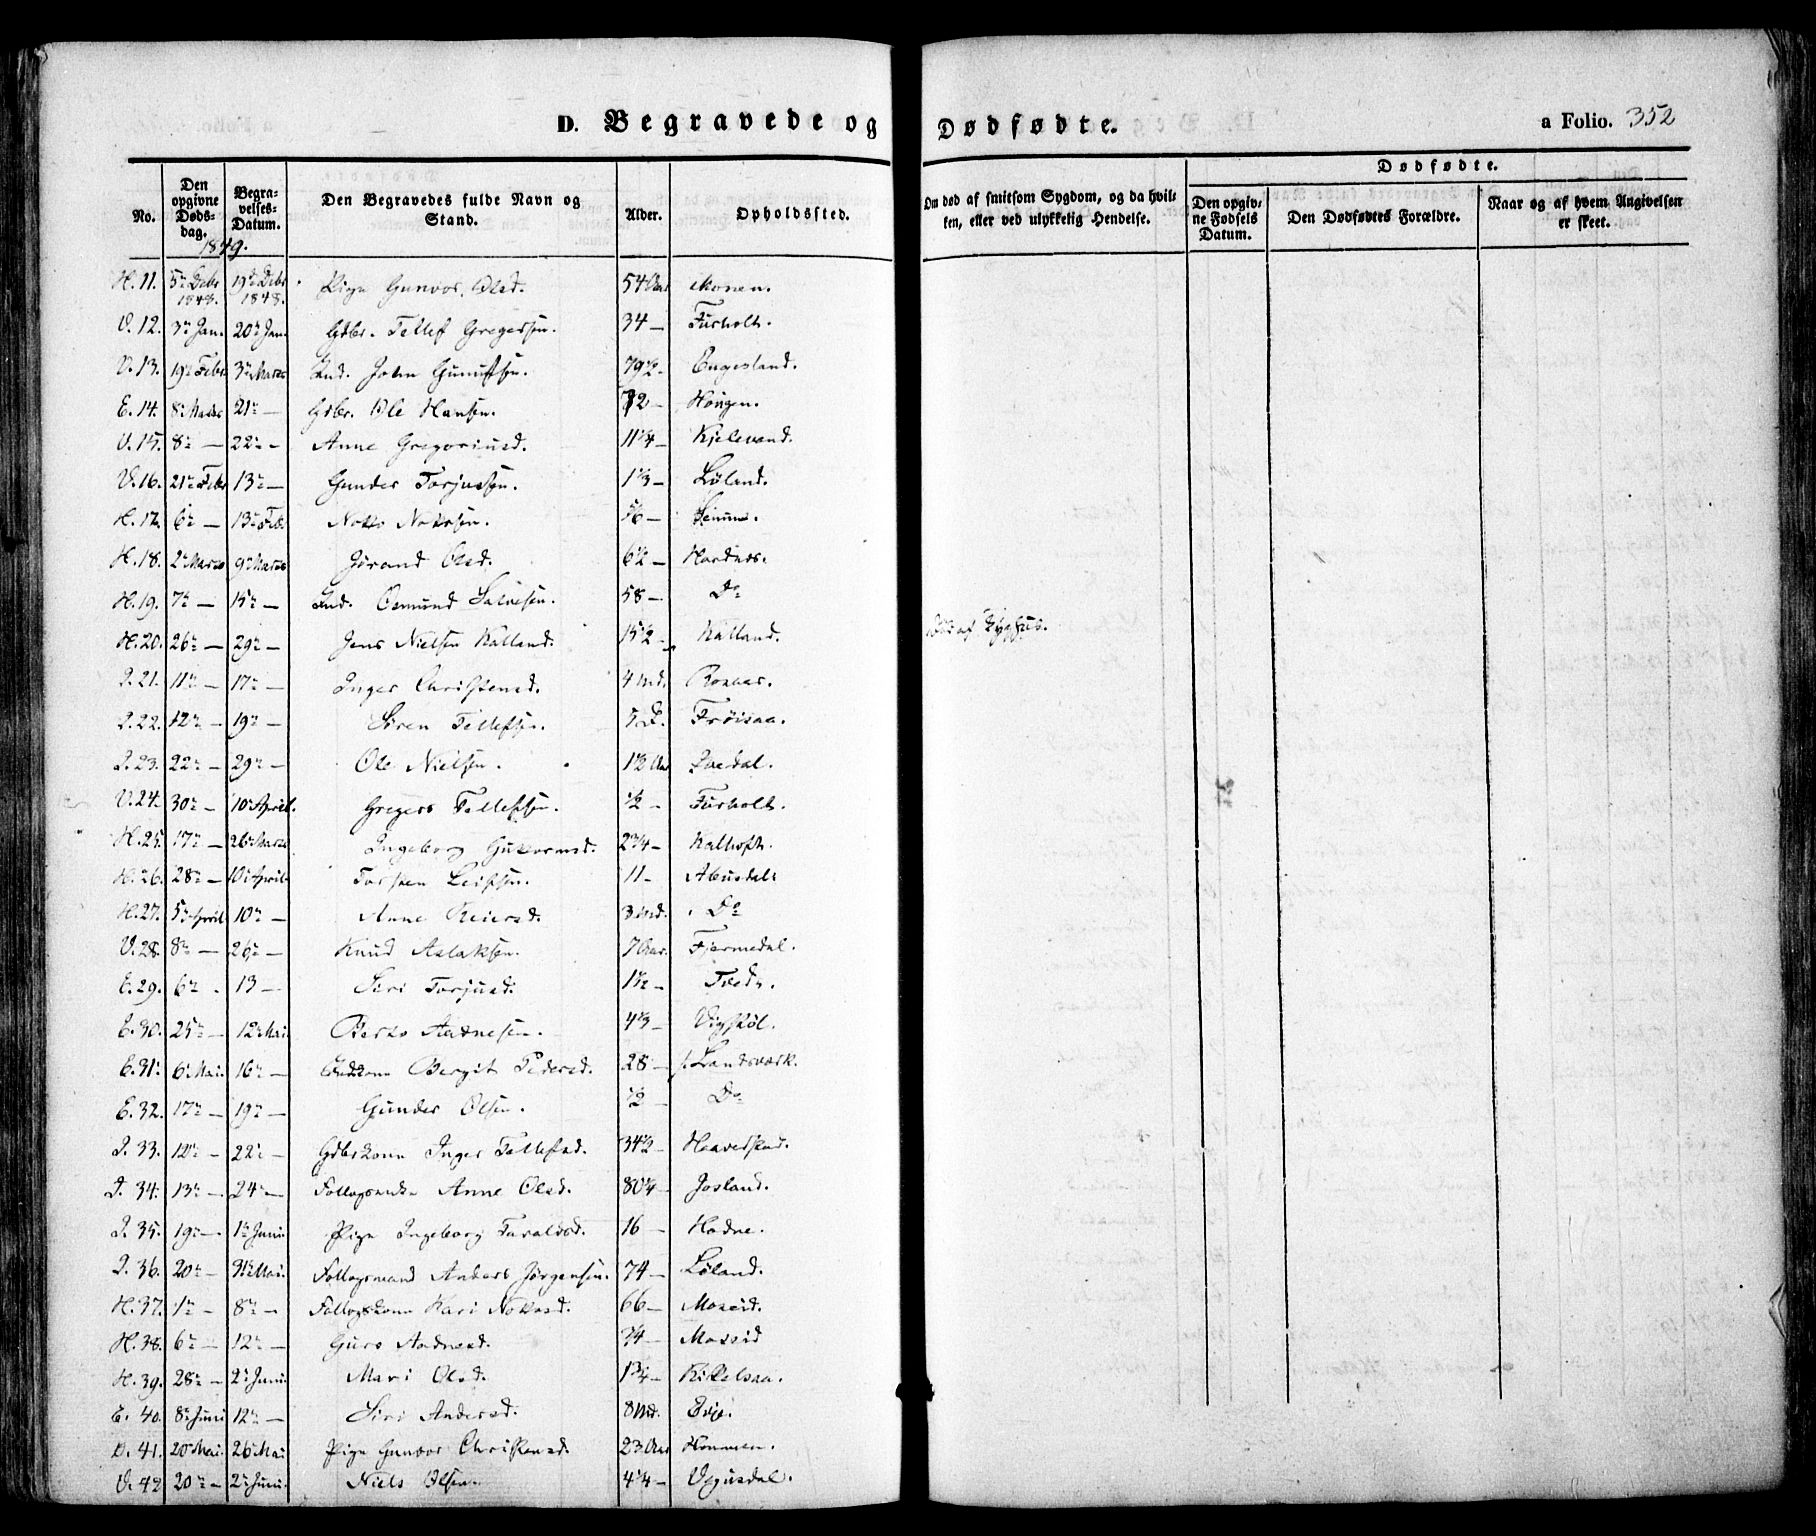 D. Begravede og Dødfødte. a Folio. 352
Dødfødte.
No. Den opgivne Døds-dag. Begra-velses-Datum. Den Begravedes fulde Navn og Stand. Alder. Opholdsted. Om død af smitsom Sygdom, og da hvil-ken, eller ved ulykkelig Hendelse. Den opgiv-ne Fødsels Datum. Den Dødfødtes Forældre. Naar og af hvem Angivelsen er skeet.
1849.
H. 11. 5te Debr 1848. 19de Debr 1848. Pige Gunvor Olsd. 54 Aar Monen.
V. 12. 3de Jan. 20de Jan. Gdbr. Tellef Gregersen. 34 — Furholt.
V. 13. 19de Febr 3de Marts Ind. John Gunulfsen. 79 1/2 — Engesland.
E. 14. 8de Marts 21de — Gdbr. Ole Hansen. 72 — Hougen.
V. 15. 8de — 22de — Anne Gregoriusd. 11 3/4 — Kjelevand.
V. 16. 21de Febr 13de — Gunder Torjussen. 1 1/3 — Løland.
H. 17. 6te — 13de Feb. Notto Nottosen. —
H. 18. 2den Marts 9de Marts Jørand Olsd. 6 1/2 — Hordnes.
H. 19. 7de — 15de — Ind. Osmund Salvesen. 58 — Do
H. 20. 26de — 29de — Jens Nielsen Kalland. 15 1/2 — Kalland. Død af Typhus.
I. 21. 11te — 17de — Inger Christensd. 4 Md.
I. 22. 12te — 19de — Søren Tellefsen. 5 D. Frøisaa.
I. 23. 22de — 29de — Ole Nielsen. 1 1/2 Aar
V. 24. 30te — 10de April. Gregers Tellefsen. 1/2 — Furholt.
H. 25. 17de — 26de Marts Ingeborg Guttormsd. 2 3/4 — Kalhoft.
H. 26. 28de — 10de April Torsten Leifsen. 11 — Abusdal
H. 27. 5te April 10de — Anne Reiersd. 3 Md. Do
V. 28. 8de — 26de — Knud Aslaksen. 7 Aar. Fjermedal.
E. 29. 6te — 13 — Siri Torjusd. 1 1/2 — Tvedt.
E. 30. 25de — 12te Mai Berto Aadnesen. 4 1/3 — Vigstøl.
E. 31. 6te Mai. 16de — Bergit Pedersd. 28 — Landsværk.
E. 32. 17de — 19de — Gunder Olsen. 1/2 — Do
I. 33. 12te — 22de — Gdbrkone Inger Tellefsd. 34 1/2 — Haverstad.
I. 34. 13de — 24de — Follogsenke Anne Olsd. 80 1/4 — Josland.
I. 35. 19de — 1ste Juni. Pige Ingeborg Taraldsd. 16 — Hodne.
I. 36. 20de — 31te Mai. Follogsmand Anders Jørgensen. 74 — Løland.
H. 37. 1ste — 8de — Follogskone Kari Nottosd. 66 — Moseid.
H. 38. 6te — 12te — Guro Aadnesd. 3/4 — Moseid
H. 39. 28de — 2den Juni. Mari Olsd. 1 3/4 — Kittelsaa.
E. 40. 8de Juni 12te — Siri Andersd. 8 Md. Evje.
V. 41. 20de Mai. 26de Mai Pige Gunvor Christensd. 23 Aar Hommen.
V. 42 20de — 2den Juni. Niels Olsen. 4 1/4 — Vegusdal.